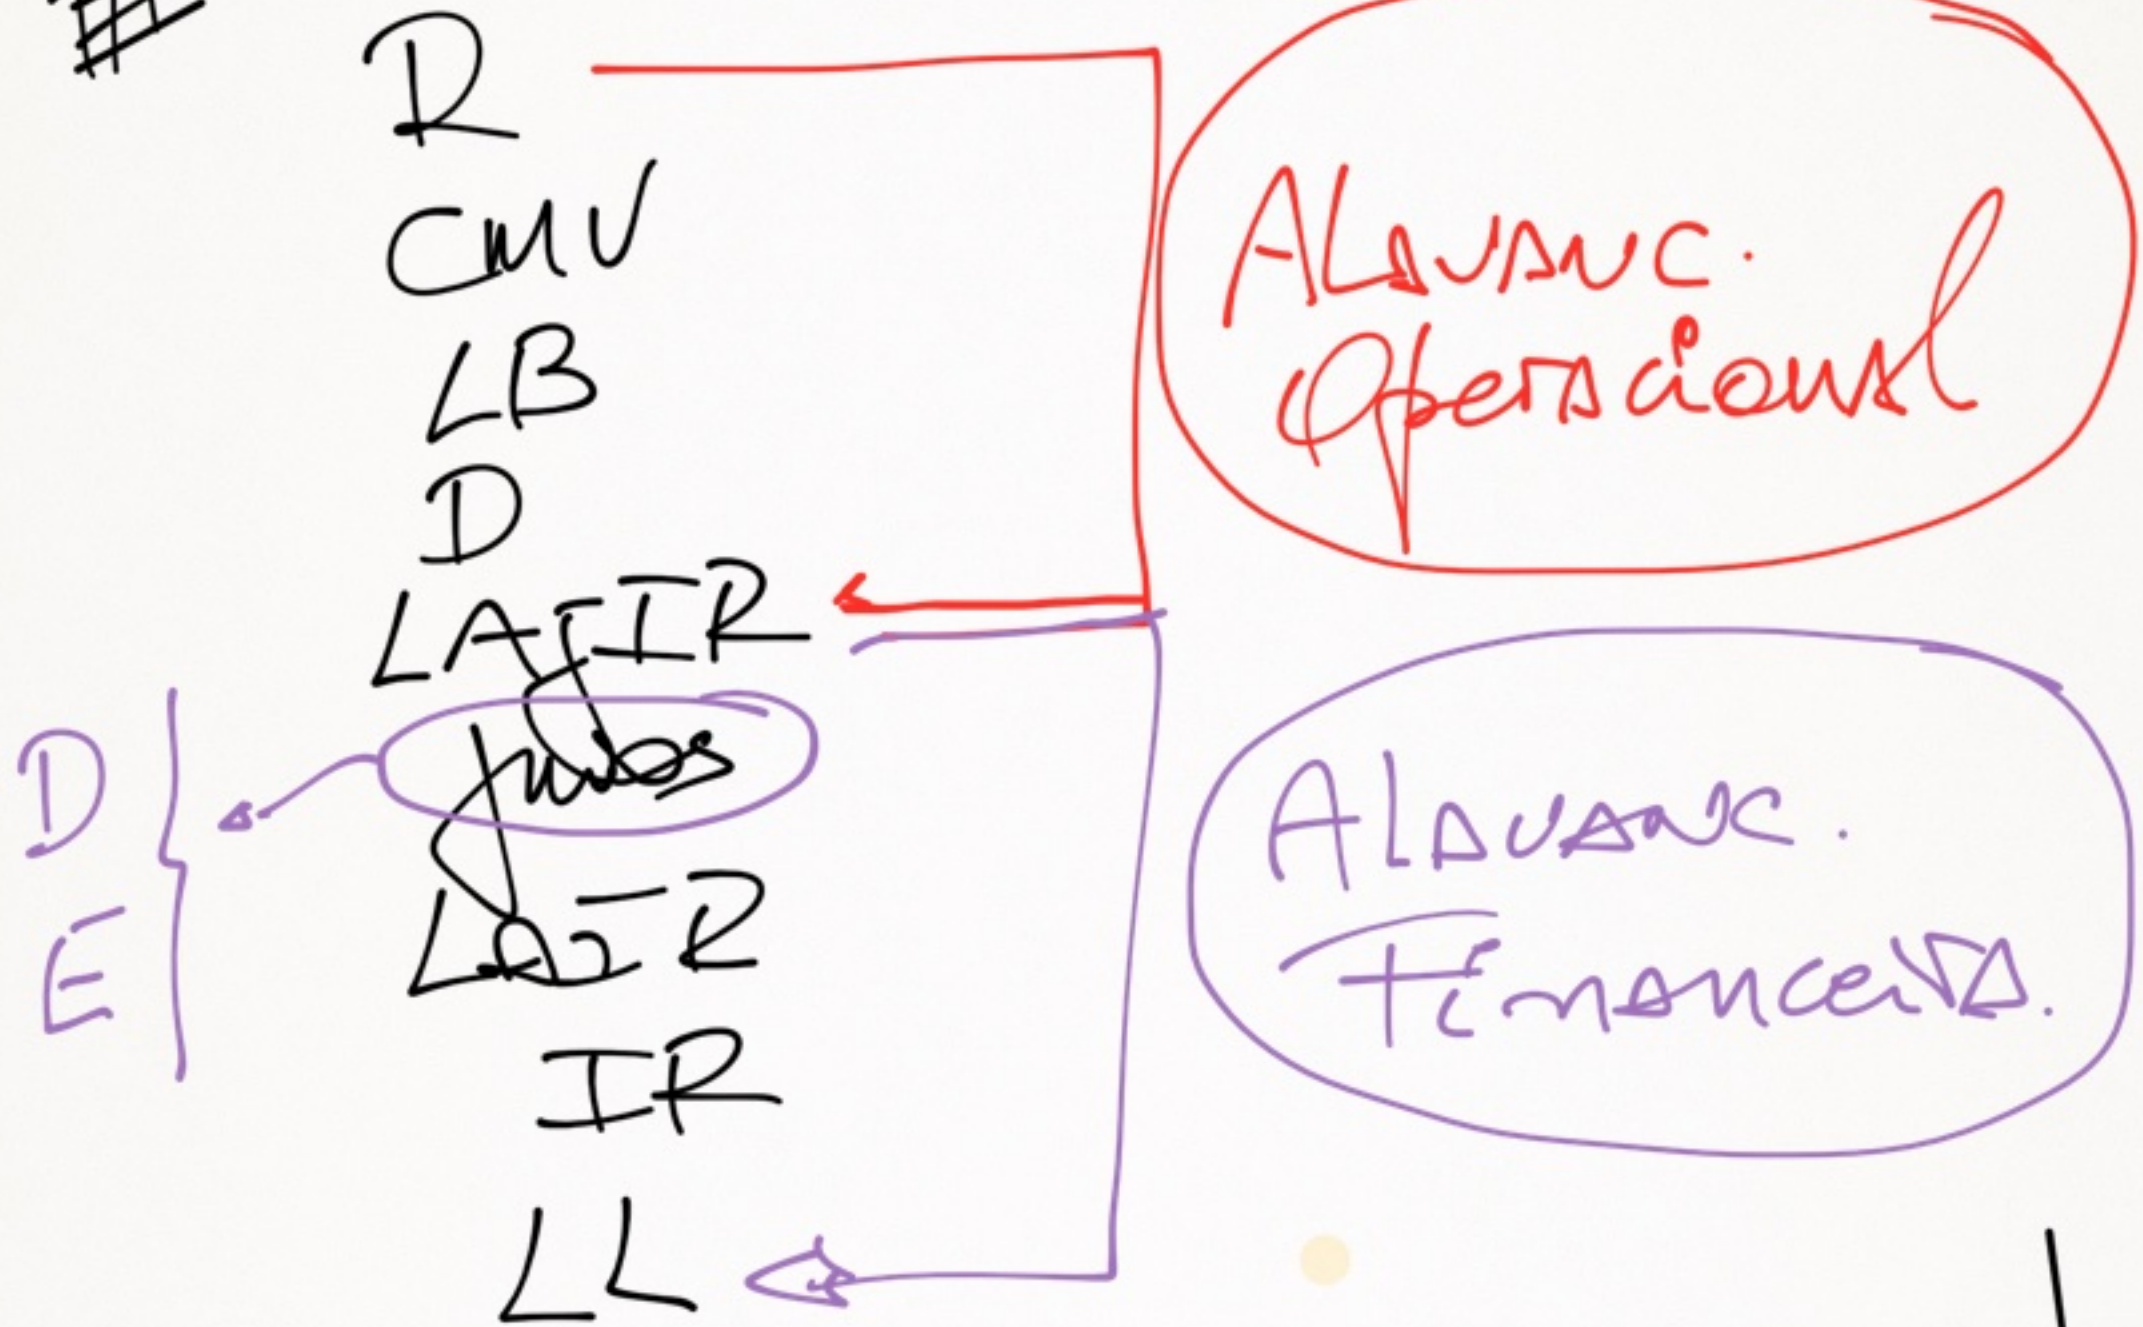 R
CMV
LB
D
LAJIR
Juros
LAIR
IR
LL
D
E
ALAVANC.
Operacional
ALAVANC.
Financeira.